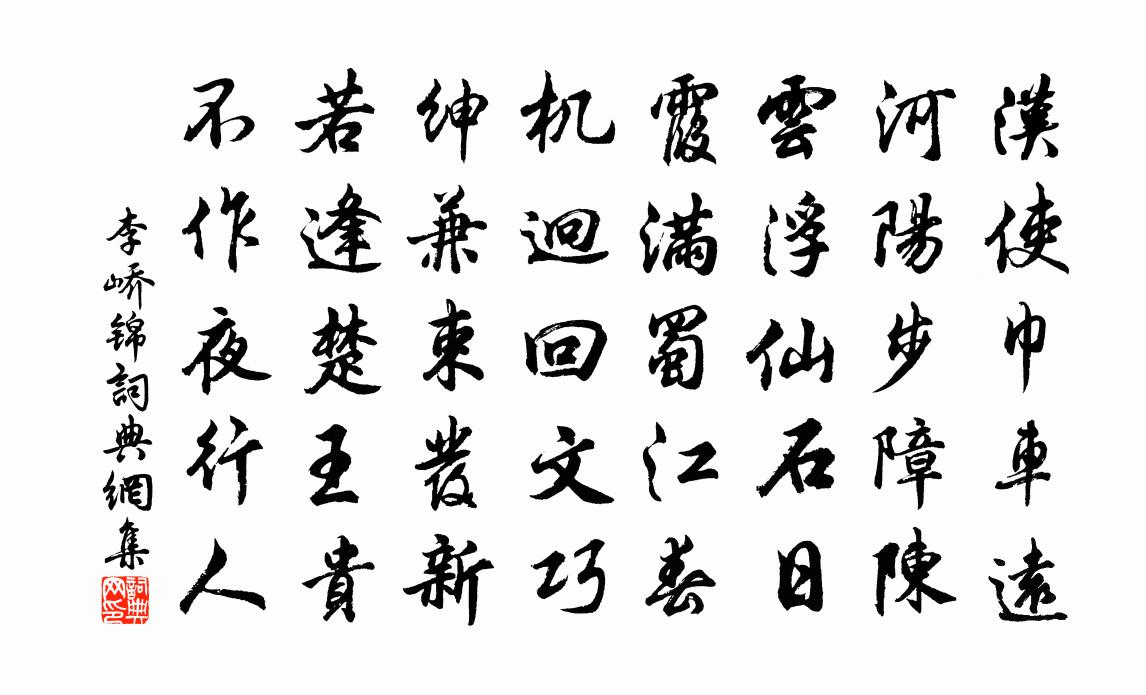 漢使巾車遠
河陽步障陳
雲浮仙石日
霞滿蜀江春
机迴回文巧
紳兼束發新
若逢楚王貴
不作夜行人
李嶠錦詞典網集
詞典网印